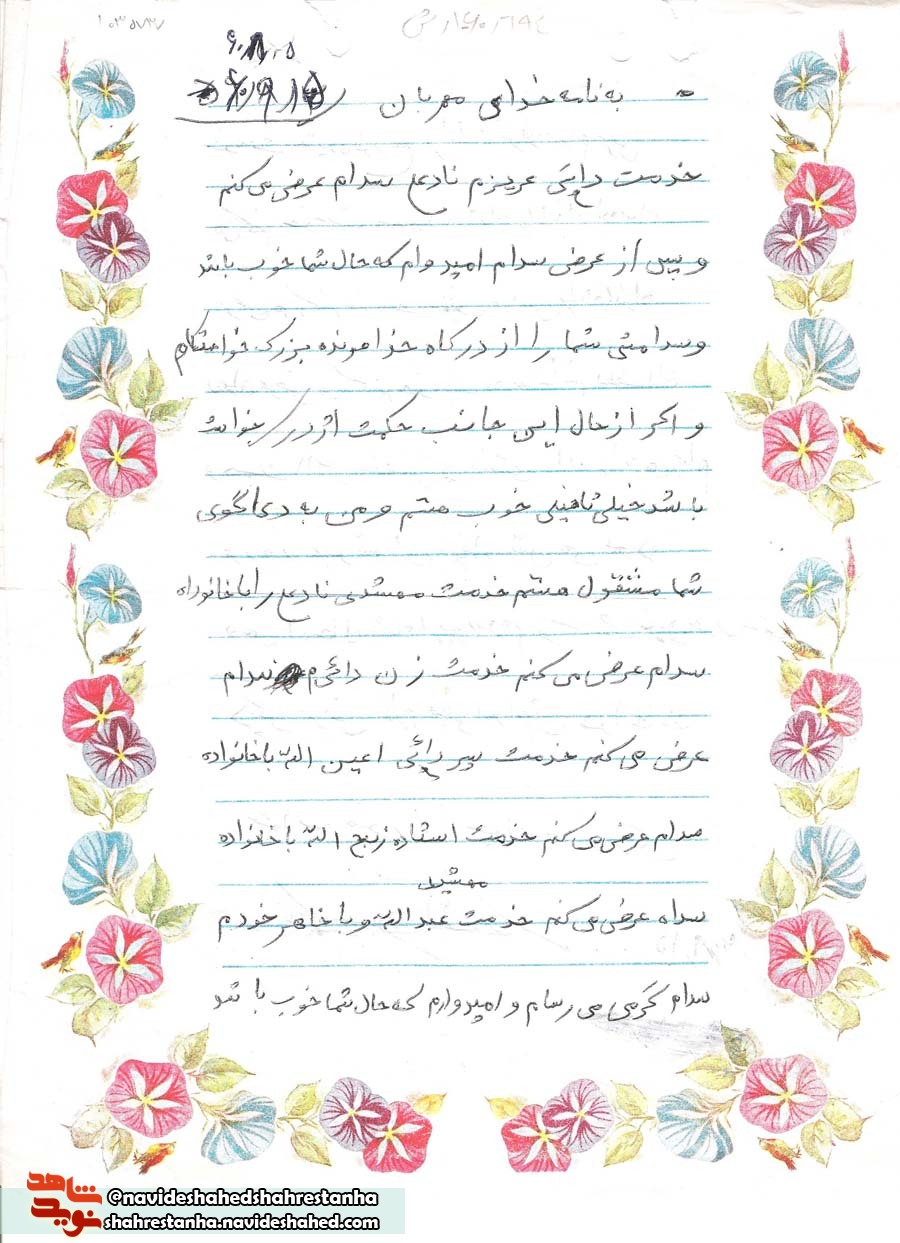 به نامه خدای مهربان
خدمت دایی عزیزم نادعلی سدام عرض می کنم
و پس از عرض سدام امیدوام که حال شما خوب باشد
وسدامتی شما را از درگاه خداوونده بزرگ خواهشکام
و اگر از حال این جانب حکمت اژدر بخواهت
باشد خیلی خیلی خوب هستم و من به دعاگوی
شما مشقول هستم خدمت مهشدی نادعلی را با خانوراه
سدام عرض می کنم خدمت زن دائی م سدام
عرض می کنم خدمت پسر دائی اعین الله باخانواده
سدام عرض می کنم خدمت استاده زبیح الله با خانواده
مهشید
سداه عرض می کنم خدمت عبدالله و با خاهر خودم
سدام گرمی می رسام و امیدوارم که حال شما خوب با شو
شاهد
نوید
@navideshahedshahrestanha
shahrestanha.navideshahed.com